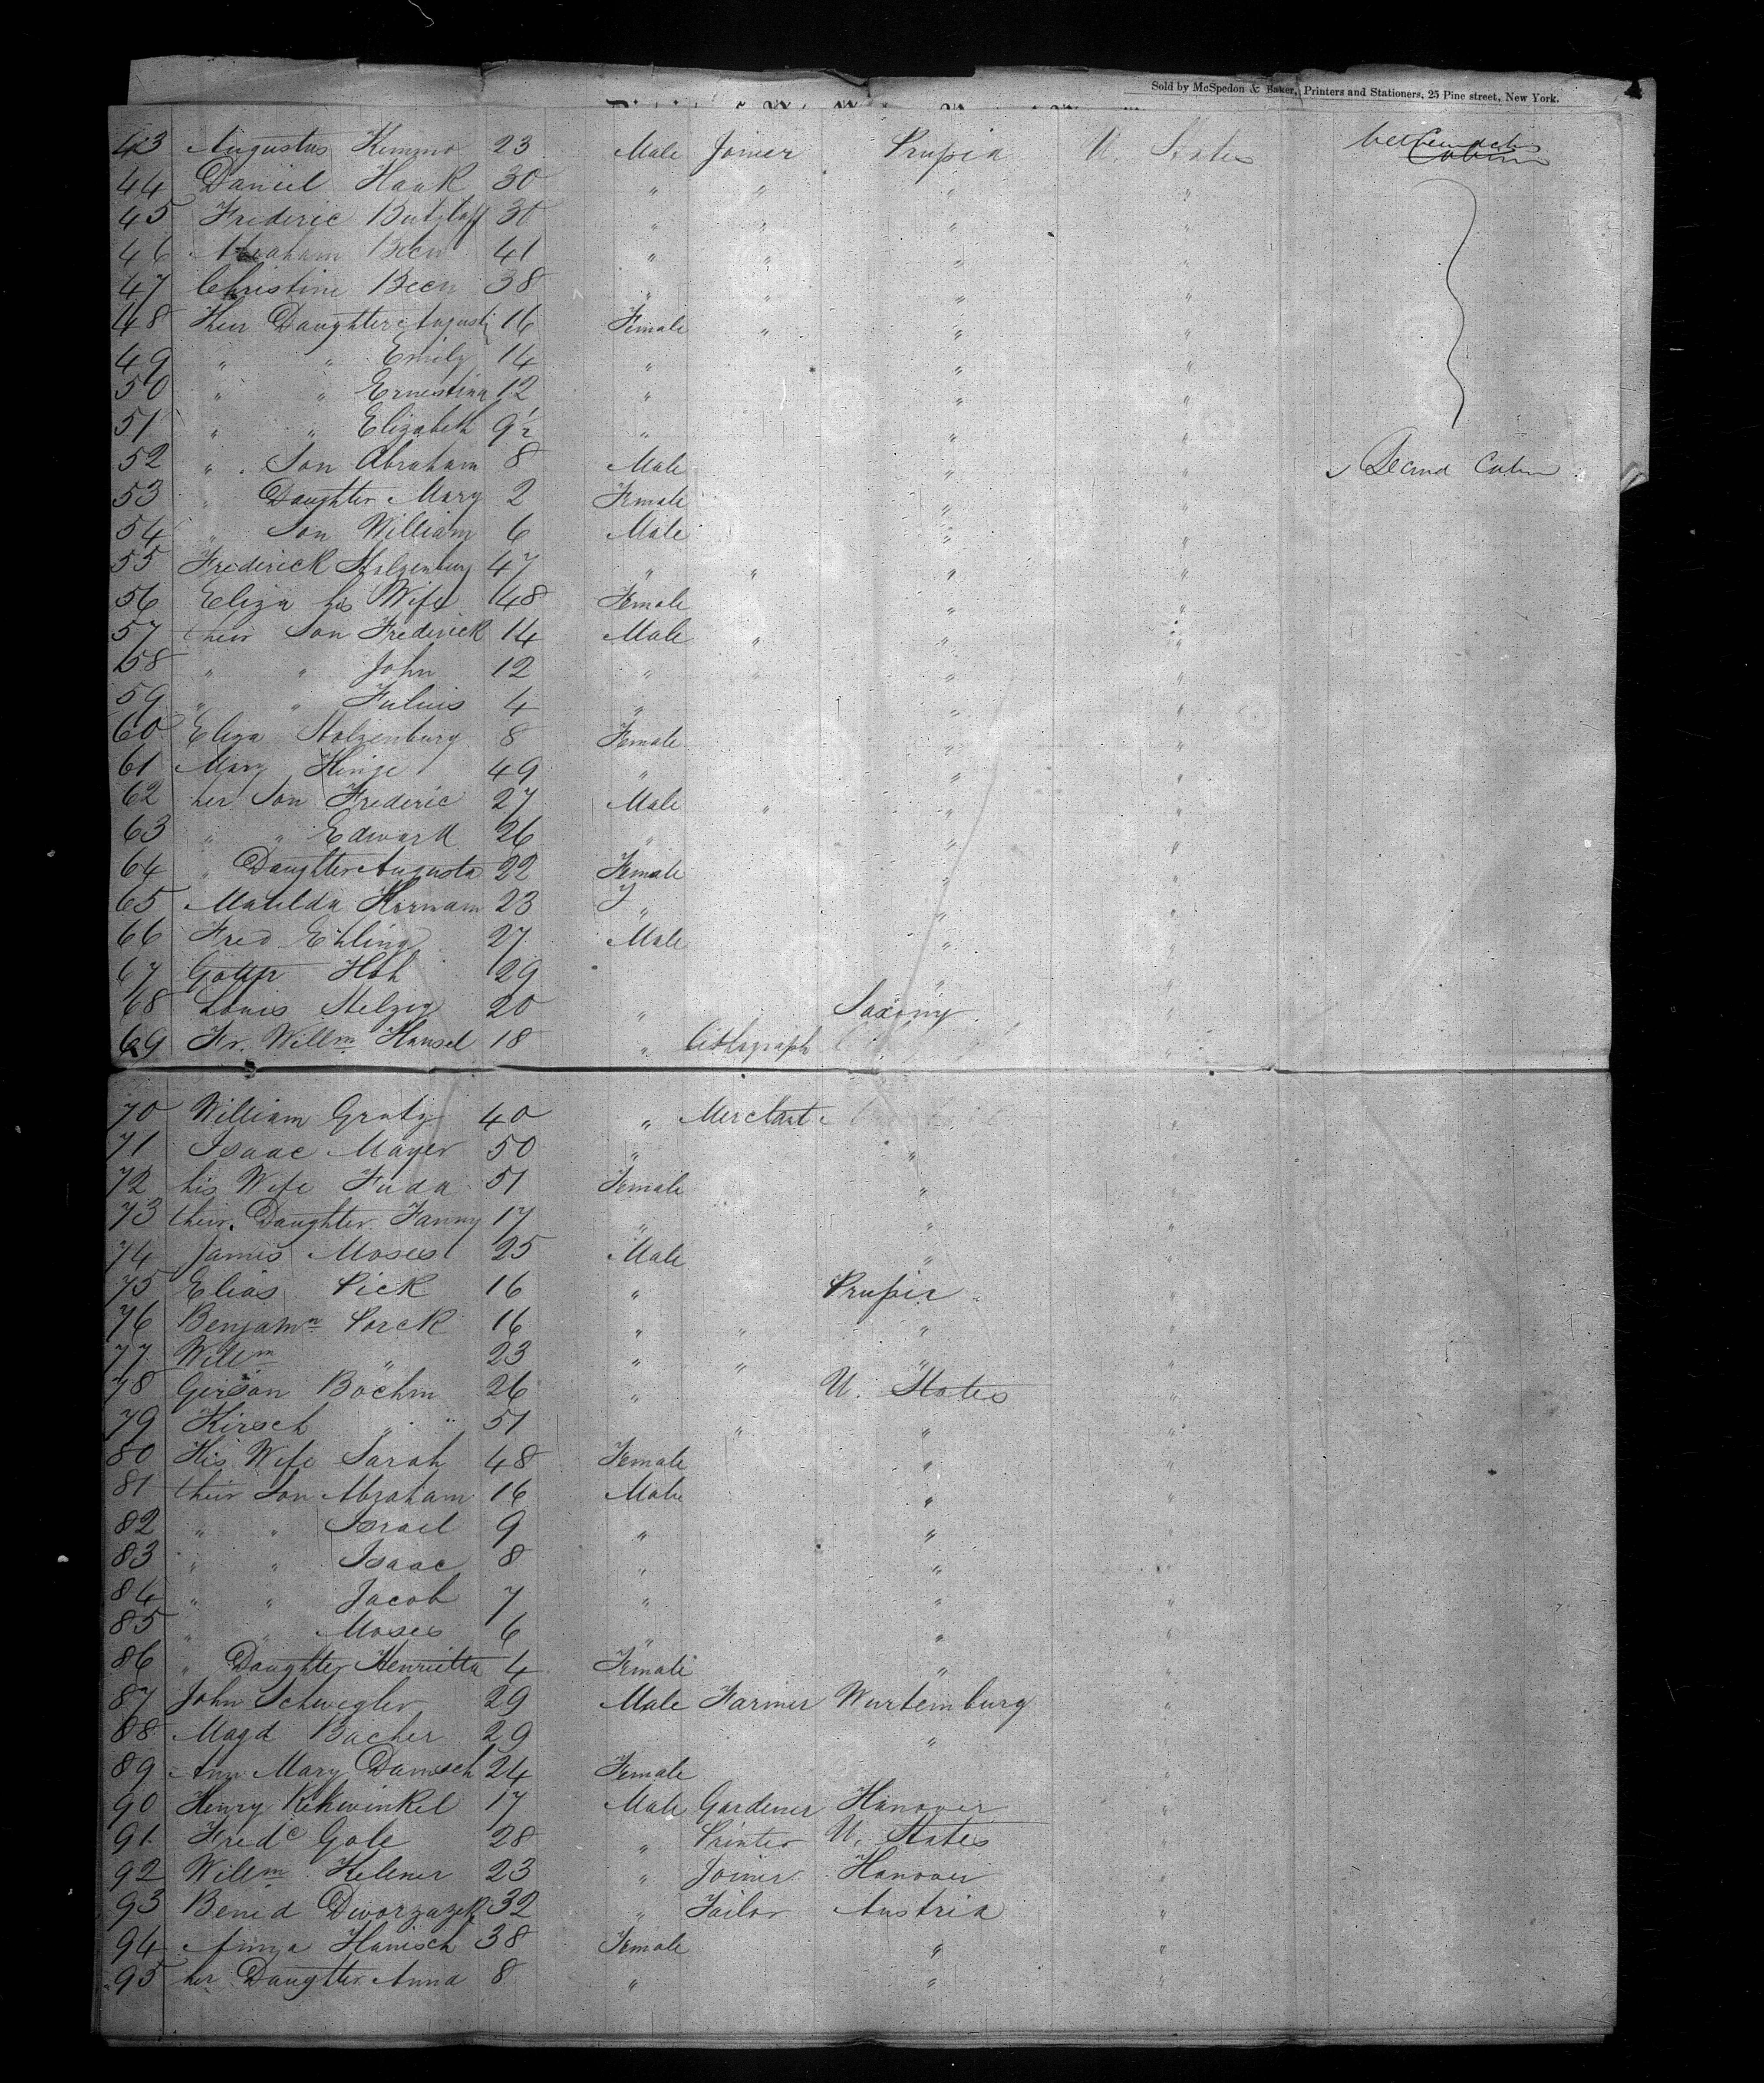 Sold by McSpedon & Baker, Printers and Stationers, 25 Pine street, New York.
43 Augustus Kemmo 23 Male Joiner Prussia U. States
44 Daniel Haak 30 " " " "
45 Frederic Butzlaff 30 " " " "
46 Abraham Been 41 " " " "
47 Christine Been 38 " " " "
48 Their Daughter Augusti 16 Female " " "
49 " " Emily 14 " " "
50 " " Ernestina 12 " " "
51 " " Elizabeth 9½ " " "
52 " Son Abraham 8 Male " " Second Cabin
53 " Daughter Mary 2 Female " "
54 " Son William 6 Male " "
55 Frederick Stolzenburg 47 " " " "
56 Eliza his Wife 48 Female " "
57 their Son Frederick 14 Male " " "
58 " " John 12 " " " "
59 " " Julius 4 " " "
60 Eliza Stolzenburg 8 Female " "
61 Mary Hinge 49 " " "
62 her Son Frederic 27 Male " " "
63 " " Edward 26 " " "
64 " Daughter Augusta 22 Female " "
65 Matilda Hormann 23 " " "
66 Fred Ehling 27 Male " "
67 Hoh 29 " "
68 Louis Stelzig 20 " Saxony "
69 Fr. Willm Hansel 18 " Lithograph "
70 William Gratz 40 " Merchant "
71 Isaac Mayer 50 " "
72 his Wife Juda 51 Female " "
73 their Daughter Fanny 17 " " "
74 James Moses 25 Male "
75 Elias Pick 16 " Prussia "
76 Benjamn Porck 16 " " " "
77 Willm " 23 " " " "
78 Gerson Boehm 26 " U. States "
79 Hirsch " 51 " " "
80 His Wife Sarah 48 Female " "
81 their Son Abraham 16 Male " "
82 " " Israel 9 " " "
83 " " Isaac 8 " " "
84 " " Jacob 7 " " "
85 " " Moses 6 " " "
86 " Daughter Henrietta 4 Female " "
87 John Schwegler 29 Male Farmer Wurtemburg "
88 Magd Bacher 29 " "
89 Ann Mary Damsch 24 Female "
90 Henry Kekwinkel 17 Male Gardener Hanover "
91 Fredc Gole 28 " Printer U. States "
92 Willm Kelener 23 " Joiner Hanover "
93 Bened Dworzazek 32 " Tailor Austria "
94 Hanisch 38 Female " "
95 her Daughter Anna 8 " " "